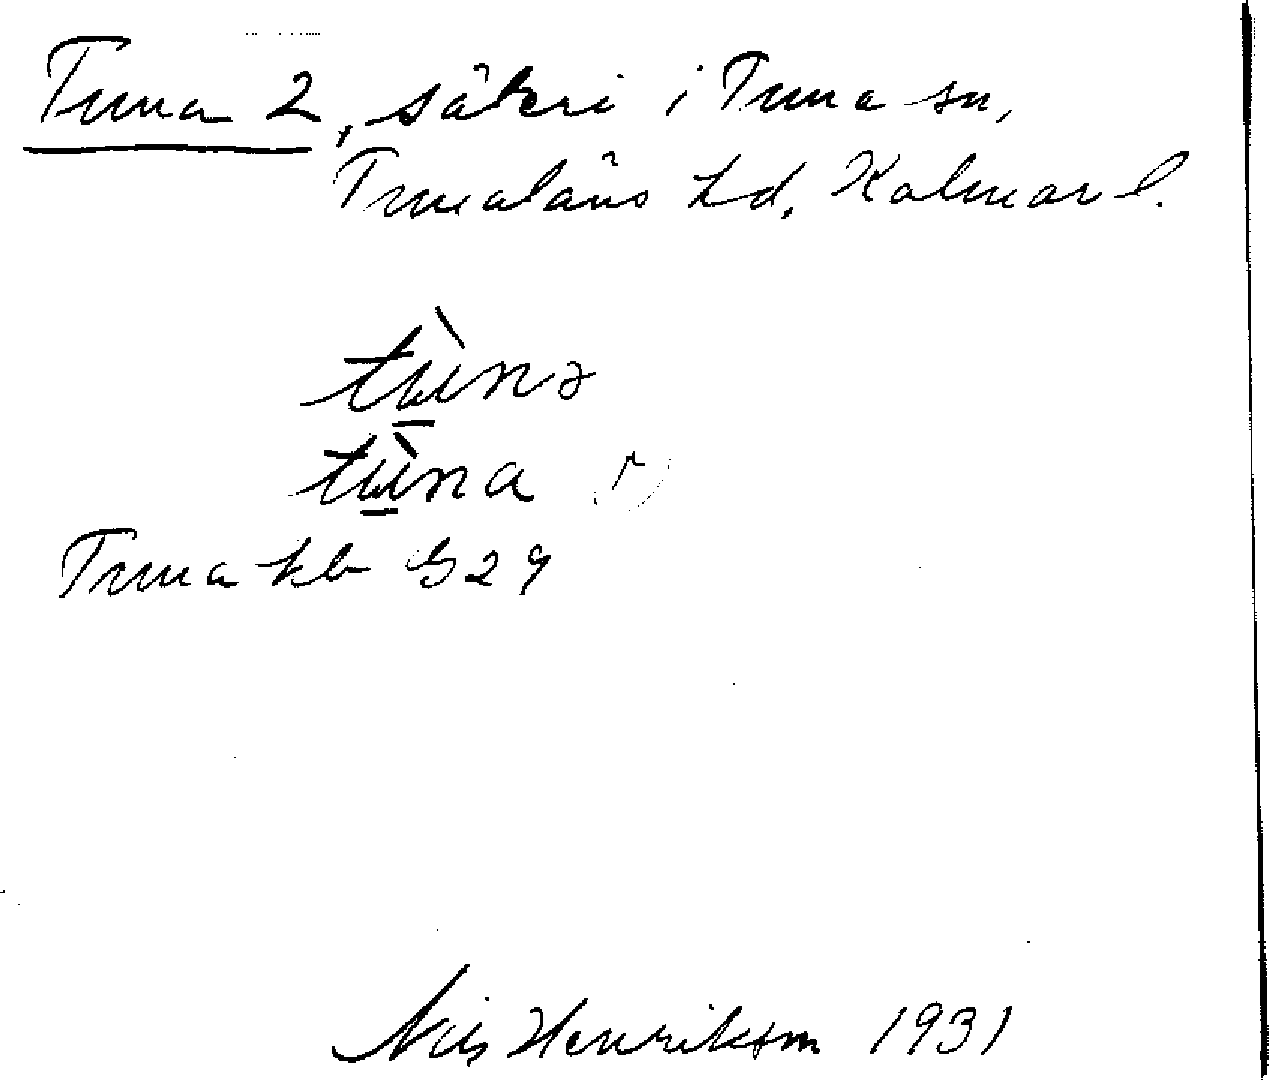 Tuna 2, säteri i Tuna sn,
Tunaläns hd, Kalmar l.
tùnə
tùna (r)
Tuna kb G29
Nils Henrikson 1931